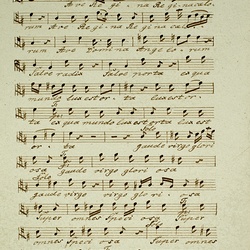 Ave Regina Regina cælo
rum Ave Regina Regina cælo
rum Ave Domina Angelorum
Salve radix Salve porta ex qua
mundo lux est orta lux est or
ta ex qua mundo lux est orta lux est
orta gaude virgo glori
osa gaude virgo glori
gaude virgo gloriosa
Super omnes speciosa Super
omnes speciosa Super omnes